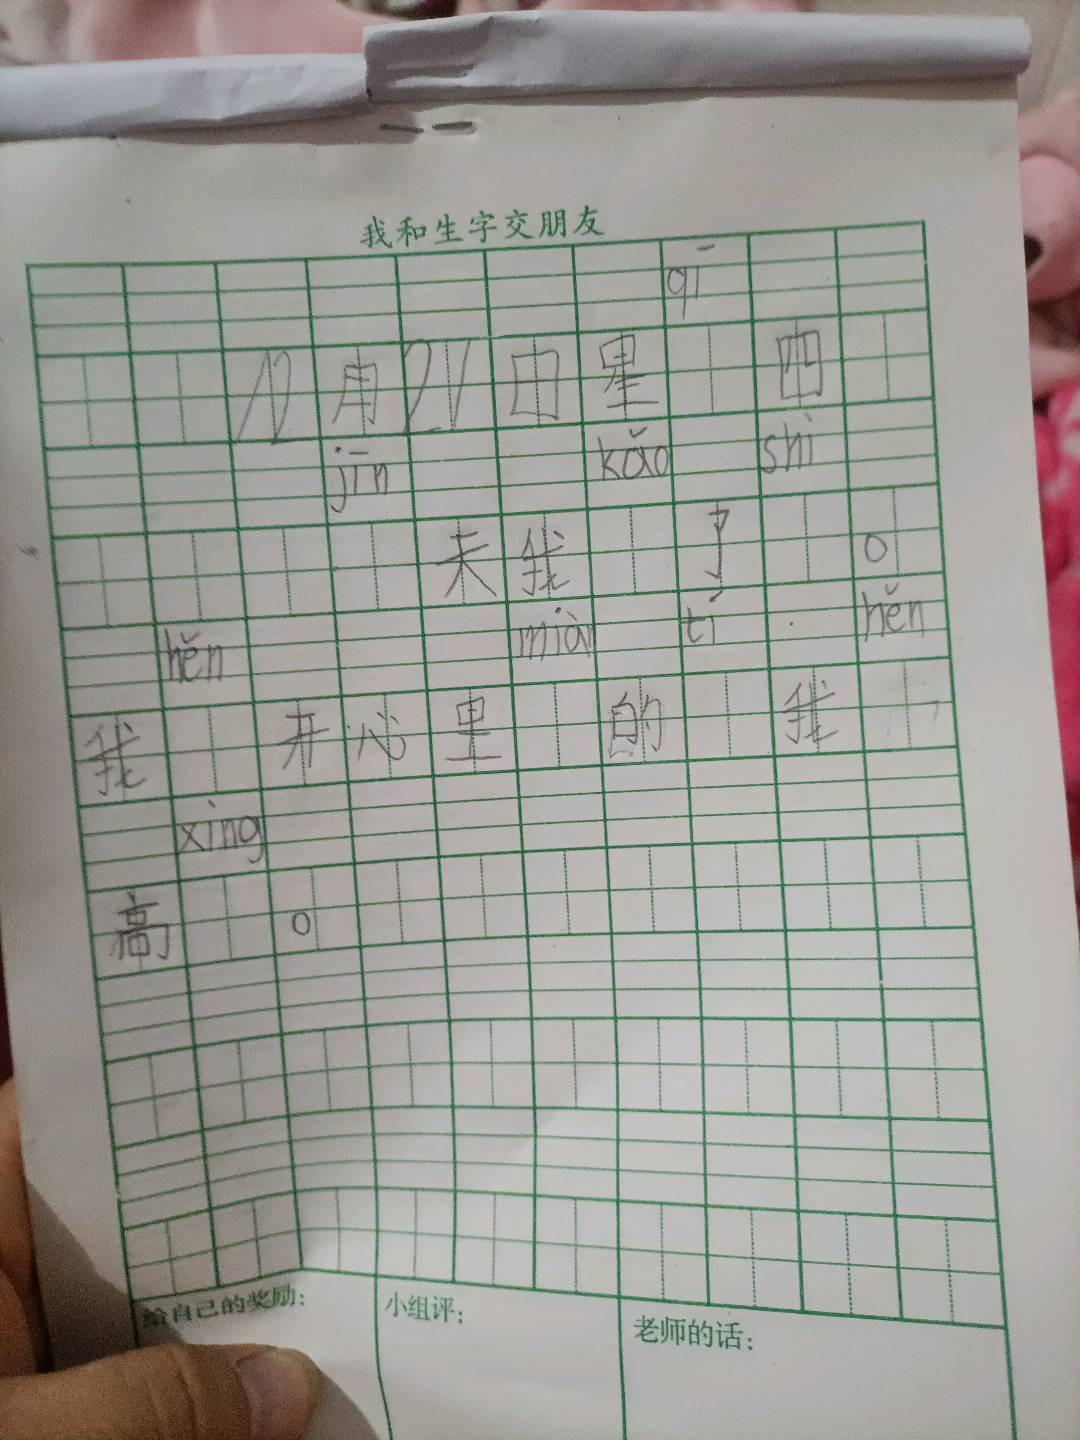 我和生字交朋友
qī
12月21日星 四
jīn kǎo shì
天我 了 。
hěn miàn tí hěn
我 开心里 的 我
xìng
高 。
给自己的奖励:
小组评:
老师的话: